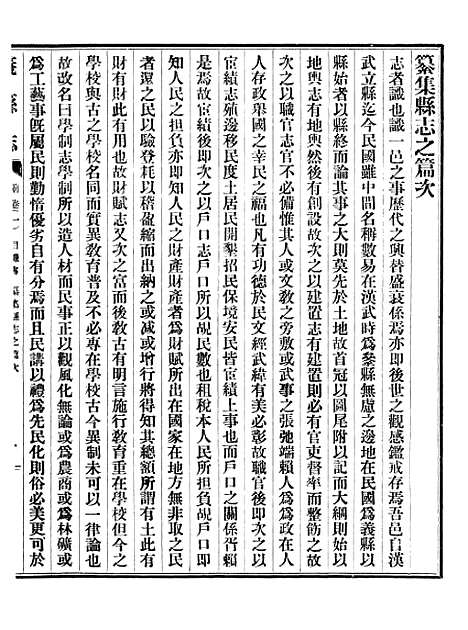 纂集縣志之篇次
志者識也識一邑之事歷代之興替盛衰係焉亦即後世之觀感鑑戒存焉吾邑自漢
武立縣迄今民國雖中間名稱數易在漢武時爲絫縣無慮之邊地在民國爲義縣以
縣始者以縣終而論其事之大則莫先於土地故首冠以圖尾附以記而大綱則始以
地輿志有地輿然後有創設故次之以建置志有建置則必有官吏督率而整飭之故
次之以職官志官不必備惟其人或文敎之旁敷或武事之張弛端賴人爲爲政在人
人存政舉國之幸民之福也凡有功德於民文經武緯有美必彰故職官後即次之以
宦績志殖邊移民度土居民開墾招民保境安民皆宦績上事也而戶口之關係胥賴
是焉故宦績後即次之以戶口志戶口所以覘民數也租稅本人民所擔負覘戶口即
知人民之担負亦即知人民之財產財產者爲財賦所出在國家在地方無非取之民
者還之民以驗登耗以稽盈縮而出納之或减或增行將得知其總額所謂有土此有
財有財此有用也故財賦志又次之富而後敎古有明言施行敎育重在學校但今之
學校與古之學校名同而實異敎育普及不必專在學校古今異制未可以一律論也
故改名曰學制志學制所以造人材而民事正以觀風化無論或爲農商或爲林礦或
爲工藝事旣屬民則勤惰優劣自有分焉而且民講以禮爲先民化則俗必美更可於
義縣志